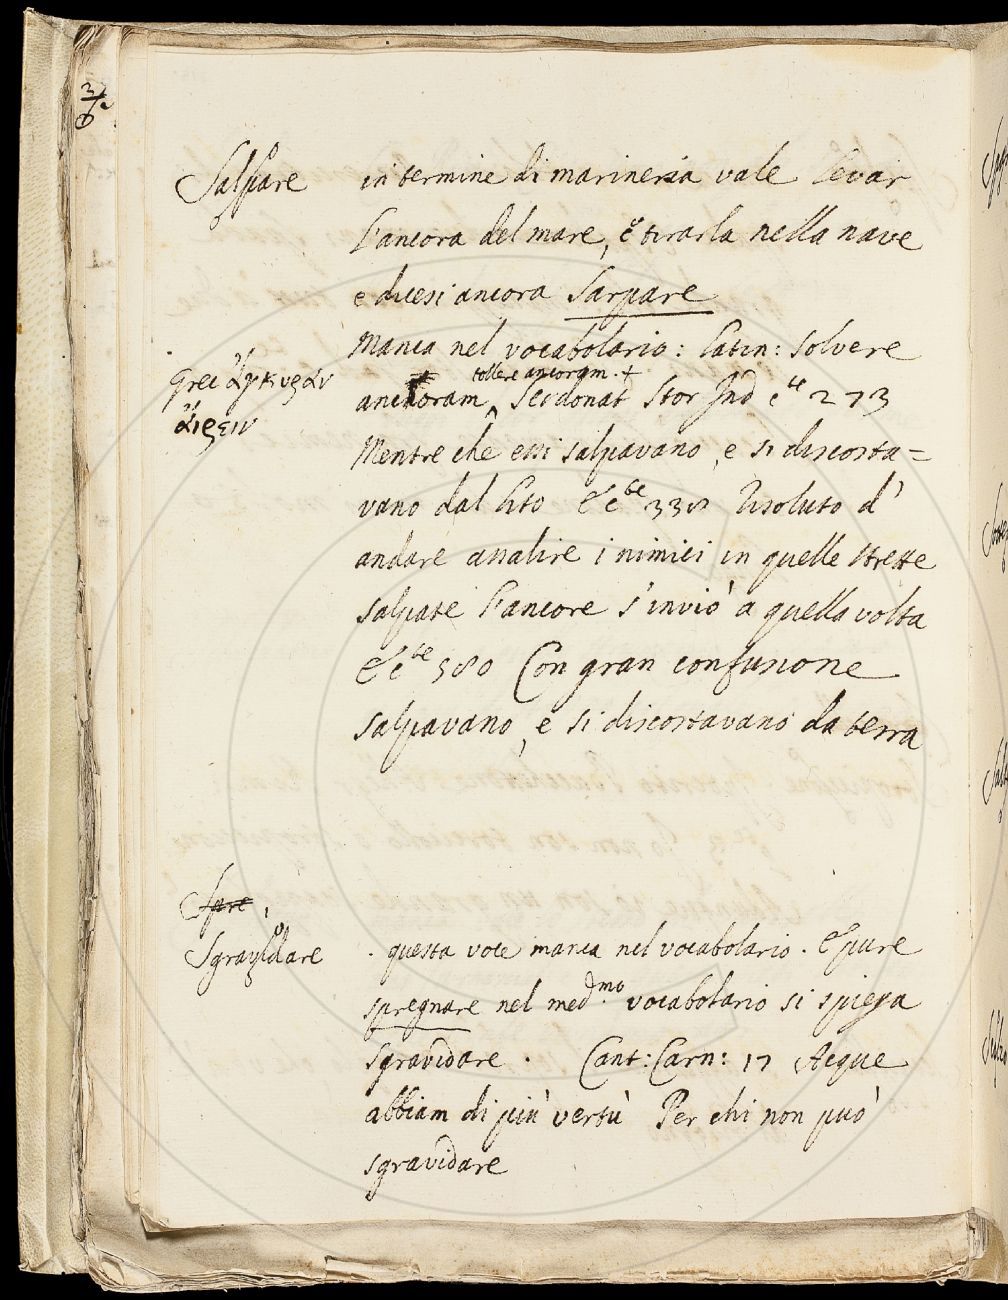 Salpare in termine di marineria vale levar
l'ancora del mare, e tirarla nella nave
e dicesi ancora Sarpare
Manca nel vocabolario: latin: solvere
Grec ἄγκυραν
tollere ancoram +
ancoram, Serdonat Stor Ind c te 273
ἄιρειν
Mentre che essi salpavano, e si discosta=
vano dal lito & c te 338 Risoluto d'
andare assalire i nimici in quelle strette
salpate l'ancore s'inviò a quella volta
& c te 580 Con gran confusione
salpavano, e si discostavano da terra
Sgravidare questa voce manca nel vocabolario. E pure
spregnare nel med.mo vocabolario si spiega
sgravidare. Cant: Carn: 17 Acque
abbiam di più vertù Per chi non può
sgravidare